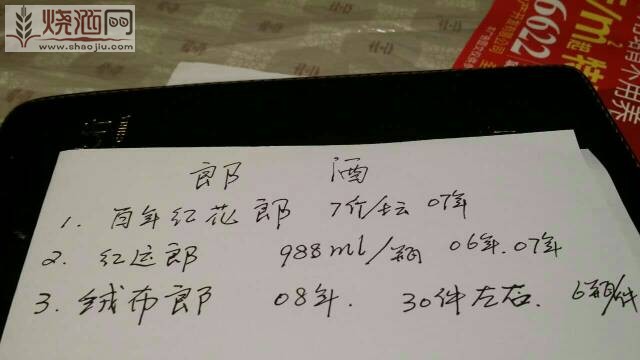 烧酒网
www.shaojiu.com
6622
/m²
郎 酒
1. 百年红花郎 7个/坛 07年
2. 红运郎 988ml/瓶 06年.07年
3. 绒布郎 08年. 30件左右. 6瓶/件